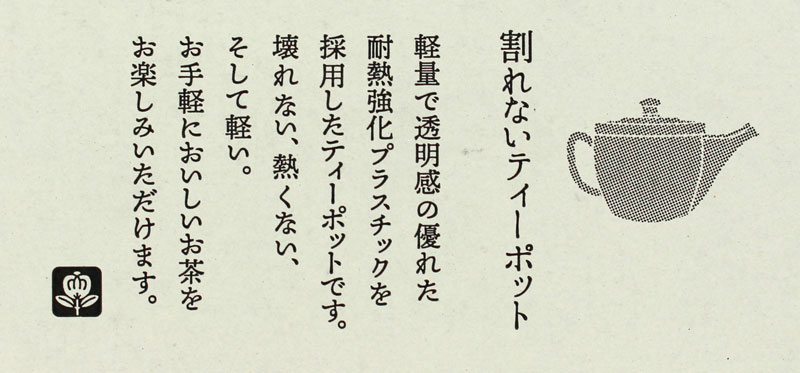 割れないティーポット
軽量で透明感の優れた
耐熱強化プラスチックを
採用したティーポットです。
壊れない、熱くない、
そして軽い。
お手軽においしいお茶を
お楽しみいただけます。